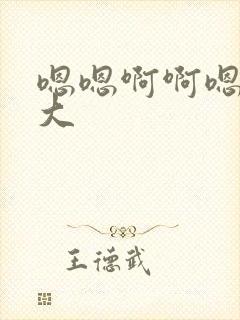 嗯嗯啊啊嗯
大
王德武